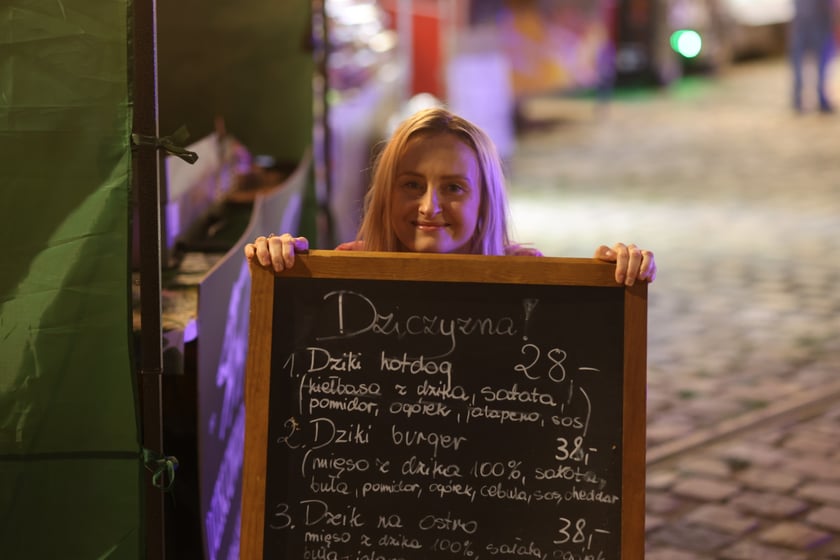 Dziczyzna!
1. Dziki hotdog 28-
(kiełbasa z dzika, sałata,
pomidor, ogórek, jalapeno, sos)
2. Dziki burger 38,-
(mięso z dzika 100%, sałata,
buła, pomidor, ogórek, cebula, sos, cheddar
3. Dzik na ostro 38,-
mięso z dzika 100%, sałata, ogórek
buła